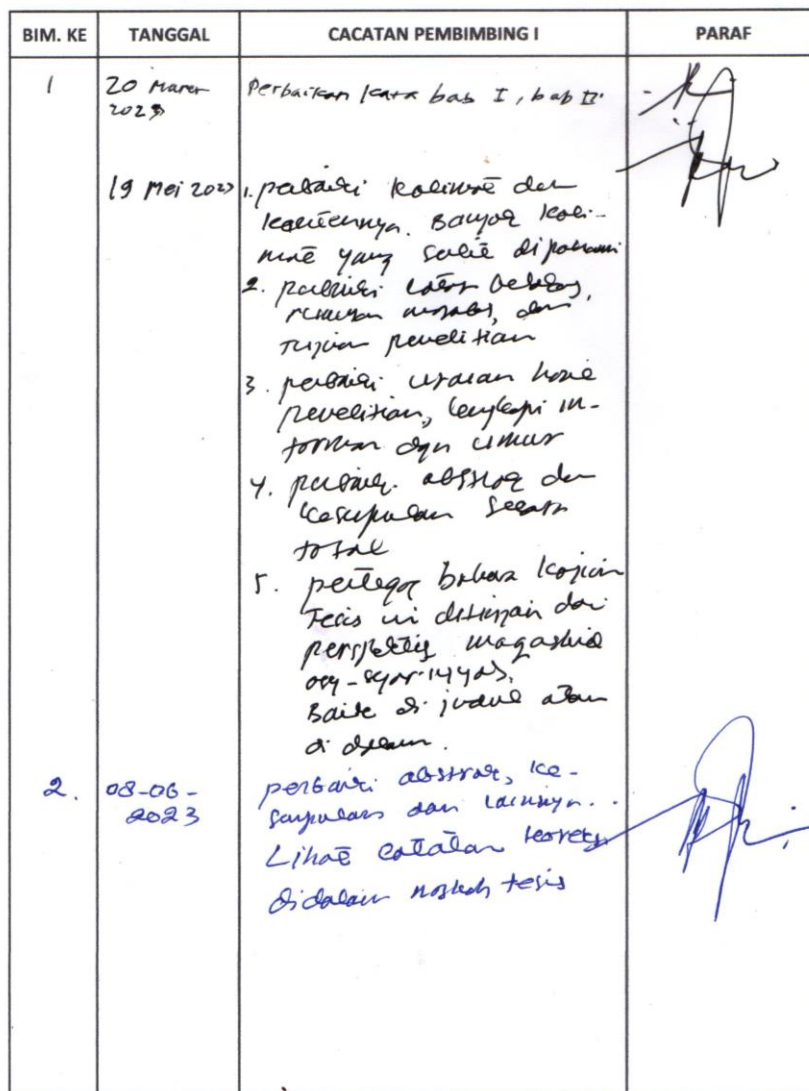 BIM. KE TANGGAL CACATAN PEMBIMBING I PARAF
1 20 Maret Perbaikan kata bab I, bab II
2023
19 Mei 2023 1. perbaiki kalimat dan
Banyak kali-
mat yang sulit dipahami
2. perbaiki latar belakang,
rumusan masalah, dan
tujuan penelitian
3. perbaiki uraian hasil
penelitian, lengkapi in-
forman dgn umur
4. perbaiki abstrak dan
kesimpulan secara
total
5. pertegas bahwa kajian
Tesis ini ditinjau dari
perspektif maqashid
asy-syar'iyyah,
Baik di judul atau
di dalam.
2. 08-06- perbaiki abstrak, ke-
2023 simpulan dan lainnya..
Lihat catatan koreksi
didalam naskah tesis